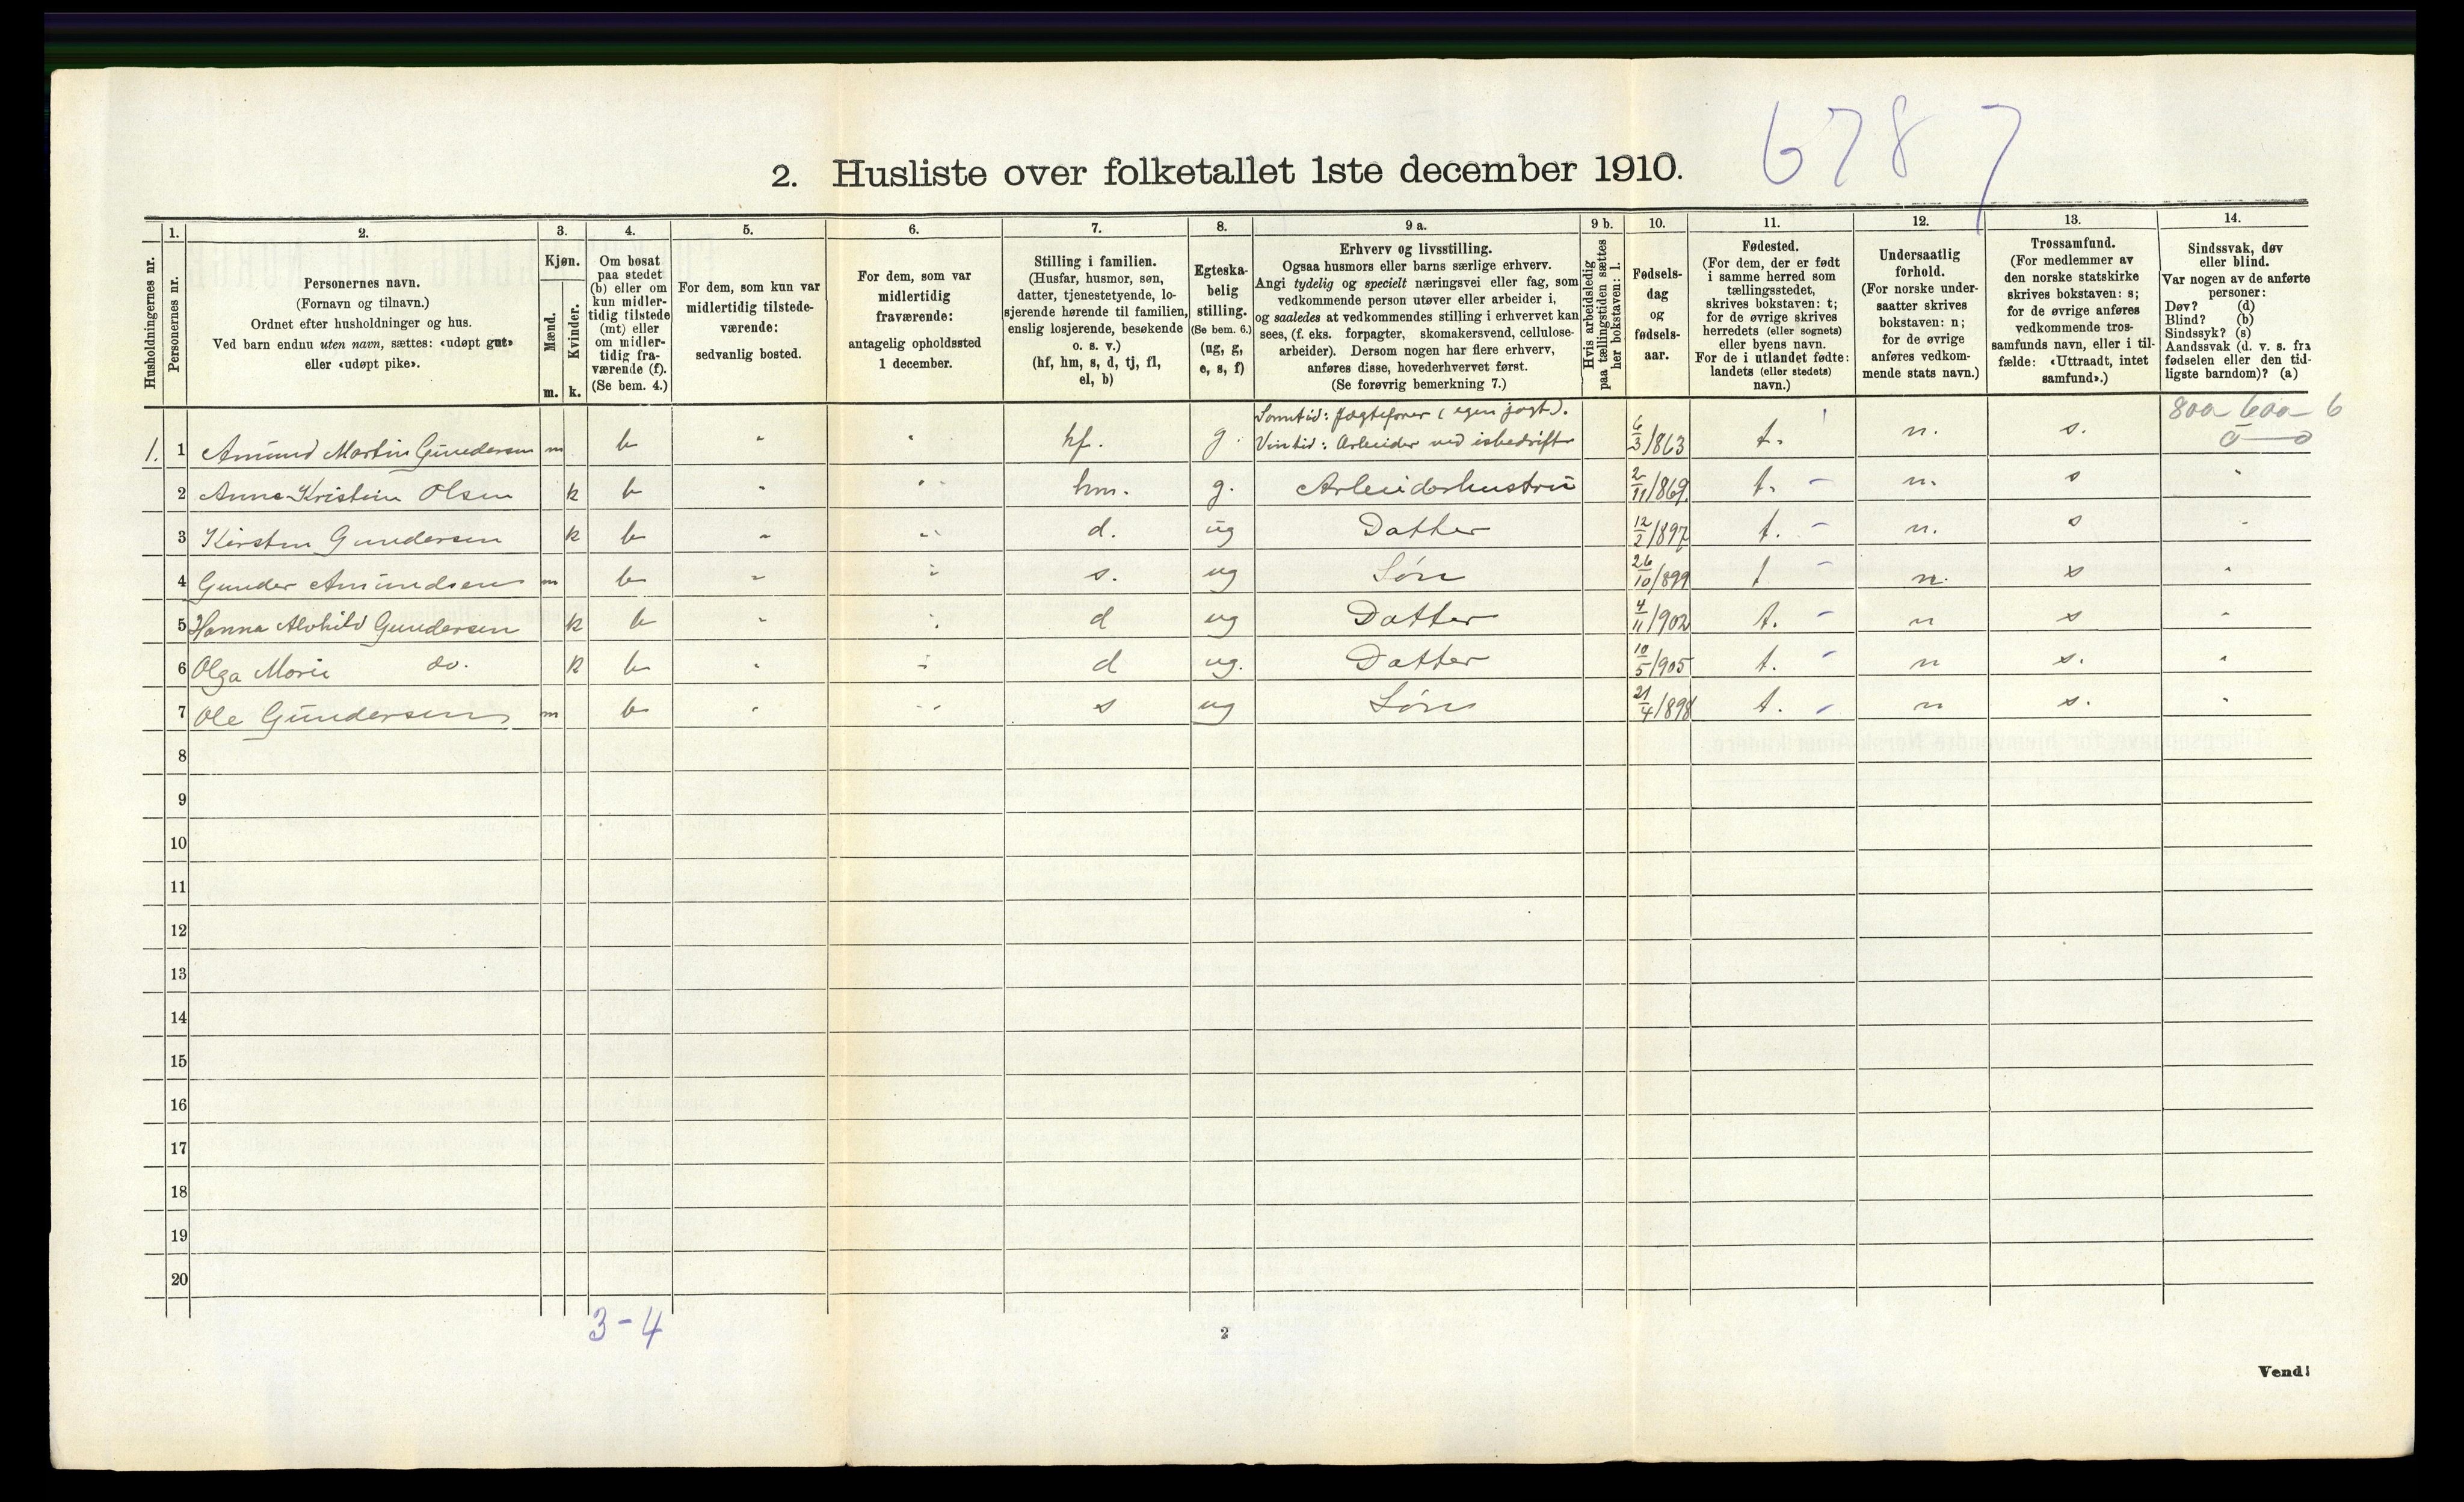 6787
2. Husliste over folketallet 1ste december 1910.
Husholdningernes nr.
1.
Personernes nr.
2.
Personernes navn.
(Fornavn og tilnavn.)
Ordnet efter husholdninger og hus.
Ved barn endnu uten navn, sættes: «udøpt gut»
eller «udøpt pike».
3.
Kjøn.
Mænd.
Kvinder.
m. k.
4.
Om bosat
paa stedet
(b) eller om
kun midler-
tidig tilstede
(mt) eller
om midler-
tidig fra-
værende (f).
(Se bem. 4.)
5.
For dem, som kun var
midlertidig tilstede-
værende:
sedvanlig bosted.
6.
For dem, som var
midlertidig
fraværende:
antagelig opholdssted
1 december.
7.
Stilling i familien.
(Husfar, husmor, søn,
datter, tjenestetyende, lo-
sjerende hørende til familien,
enslig losjerende, besøkende
o. s. v.)
(hf, hm, s, d, tj, fl,
el, b)
8.
Egteska-
belig
stilling.
(Se bem. 6.)
(ug, g,
e, s, f)
9 a.
Erhverv og livsstilling.
Ogsaa husmors eller barns særlige erhverv.
Angi tydelig og specielt næringsvei eller fag, som
vedkommende person utøver eller arbeider i,
og saaledes at vedkommendes stilling i erhvervet kan
sees, (f. eks. forpagter, skomakersvend, cellulose-
arbeider). Dersom nogen har flere erhverv,
anføres disse, hovederhvervet først.
(Se forøvrig bemerkning 7.)
9 b.
Hvis arbeidsledig
paa tællingstiden sættes
her bokstaven: l.
10.
Fødsels-
dag
og
fødsels-
aar.
11.
Fødested.
(For dem, der er født
i samme herred som
tællingsstedet,
skrives bokstaven: t;
for de øvrige skrives
herredets (eller sognets)
eller byens navn.
For de i utlandet fødte:
landets (eller stedets)
navn.)
12.
Undersaatlig
forhold.
(For norske under-
saatter skrives
bokstaven: n;
for de øvrige
anføres vedkom-
mende stats navn.)
13.
Trossamfund.
(For medlemmer av
den norske statskirke
skrives bokstaven: s;
for de øvrige anføres
vedkommende tros-
samfunds navn, eller i til-
fælde: «Uttraadt, intet
samfund».)
14.
Sindssvak, døv
eller blind.
Var nogen av de anførte
personer:
Døv? (d)
Blind? (b)
Sindssyk? (s)
Aandssvak (d. v. s. fra
fødselen eller den tid-
ligste barndom)? (a)
800 - 600 - 6
0 — 0
Somtid: Jagtefører (egen jagt).
1. 1 Amund Martin Gundersen m b " " hf. g. Vintid: Arbeider ved isbedrift 6/3/863 t. n. s.
2 Anne Kristine Olsen k b " " hm. g. Arbeiderhustru 2/11/869. t. - n. s "
3 Kirsten Gundersen k b " " d. ug Datter 12/2/897 t. - n. s "
4 Gunder Amundsen m b " " s. ug Søn 26/10/899 t - n. s "
5 Hanna Alvhild Gundersen k b " " d ug Datter 4/11/902 t. - n s "
6 Olga Marie do. k b " " d ug. Datter 10/5/905 t. - n s. "
7 Ole Gundersen m b " " s ug Søn 21/4/898 t. - n s. "
8
9
10
11
12
13
14
15
16
17
18
19
20
3-4
2
Vend!